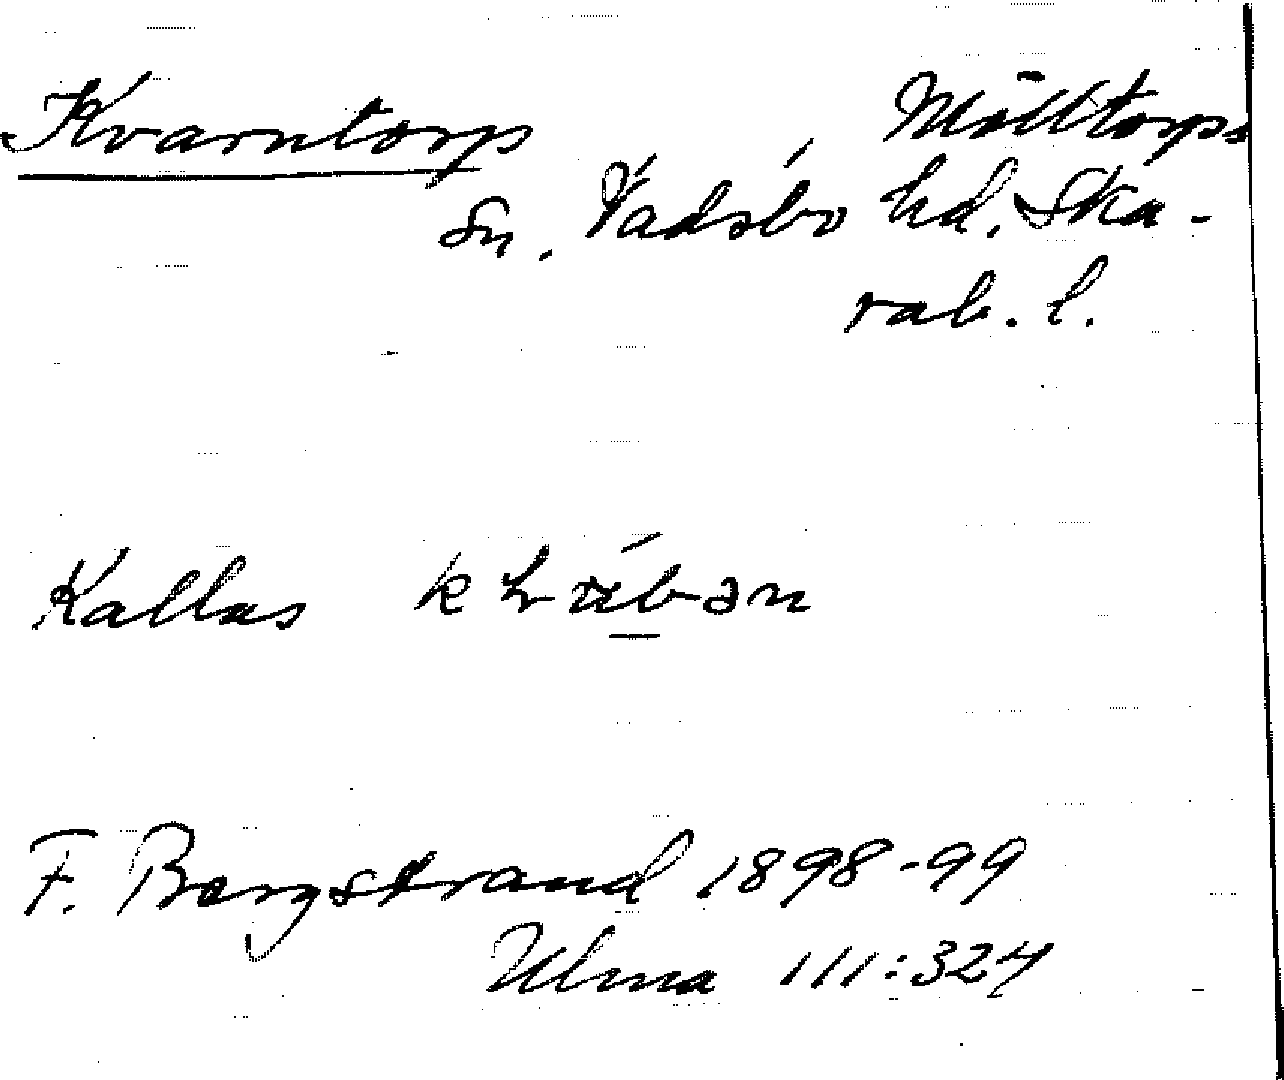 Kvarntorp Mölltorps
sn. Vadsbo hd. Ska-
rab. l.
Kallas
F. Bergstrand 1898-99
Ulma 111:324